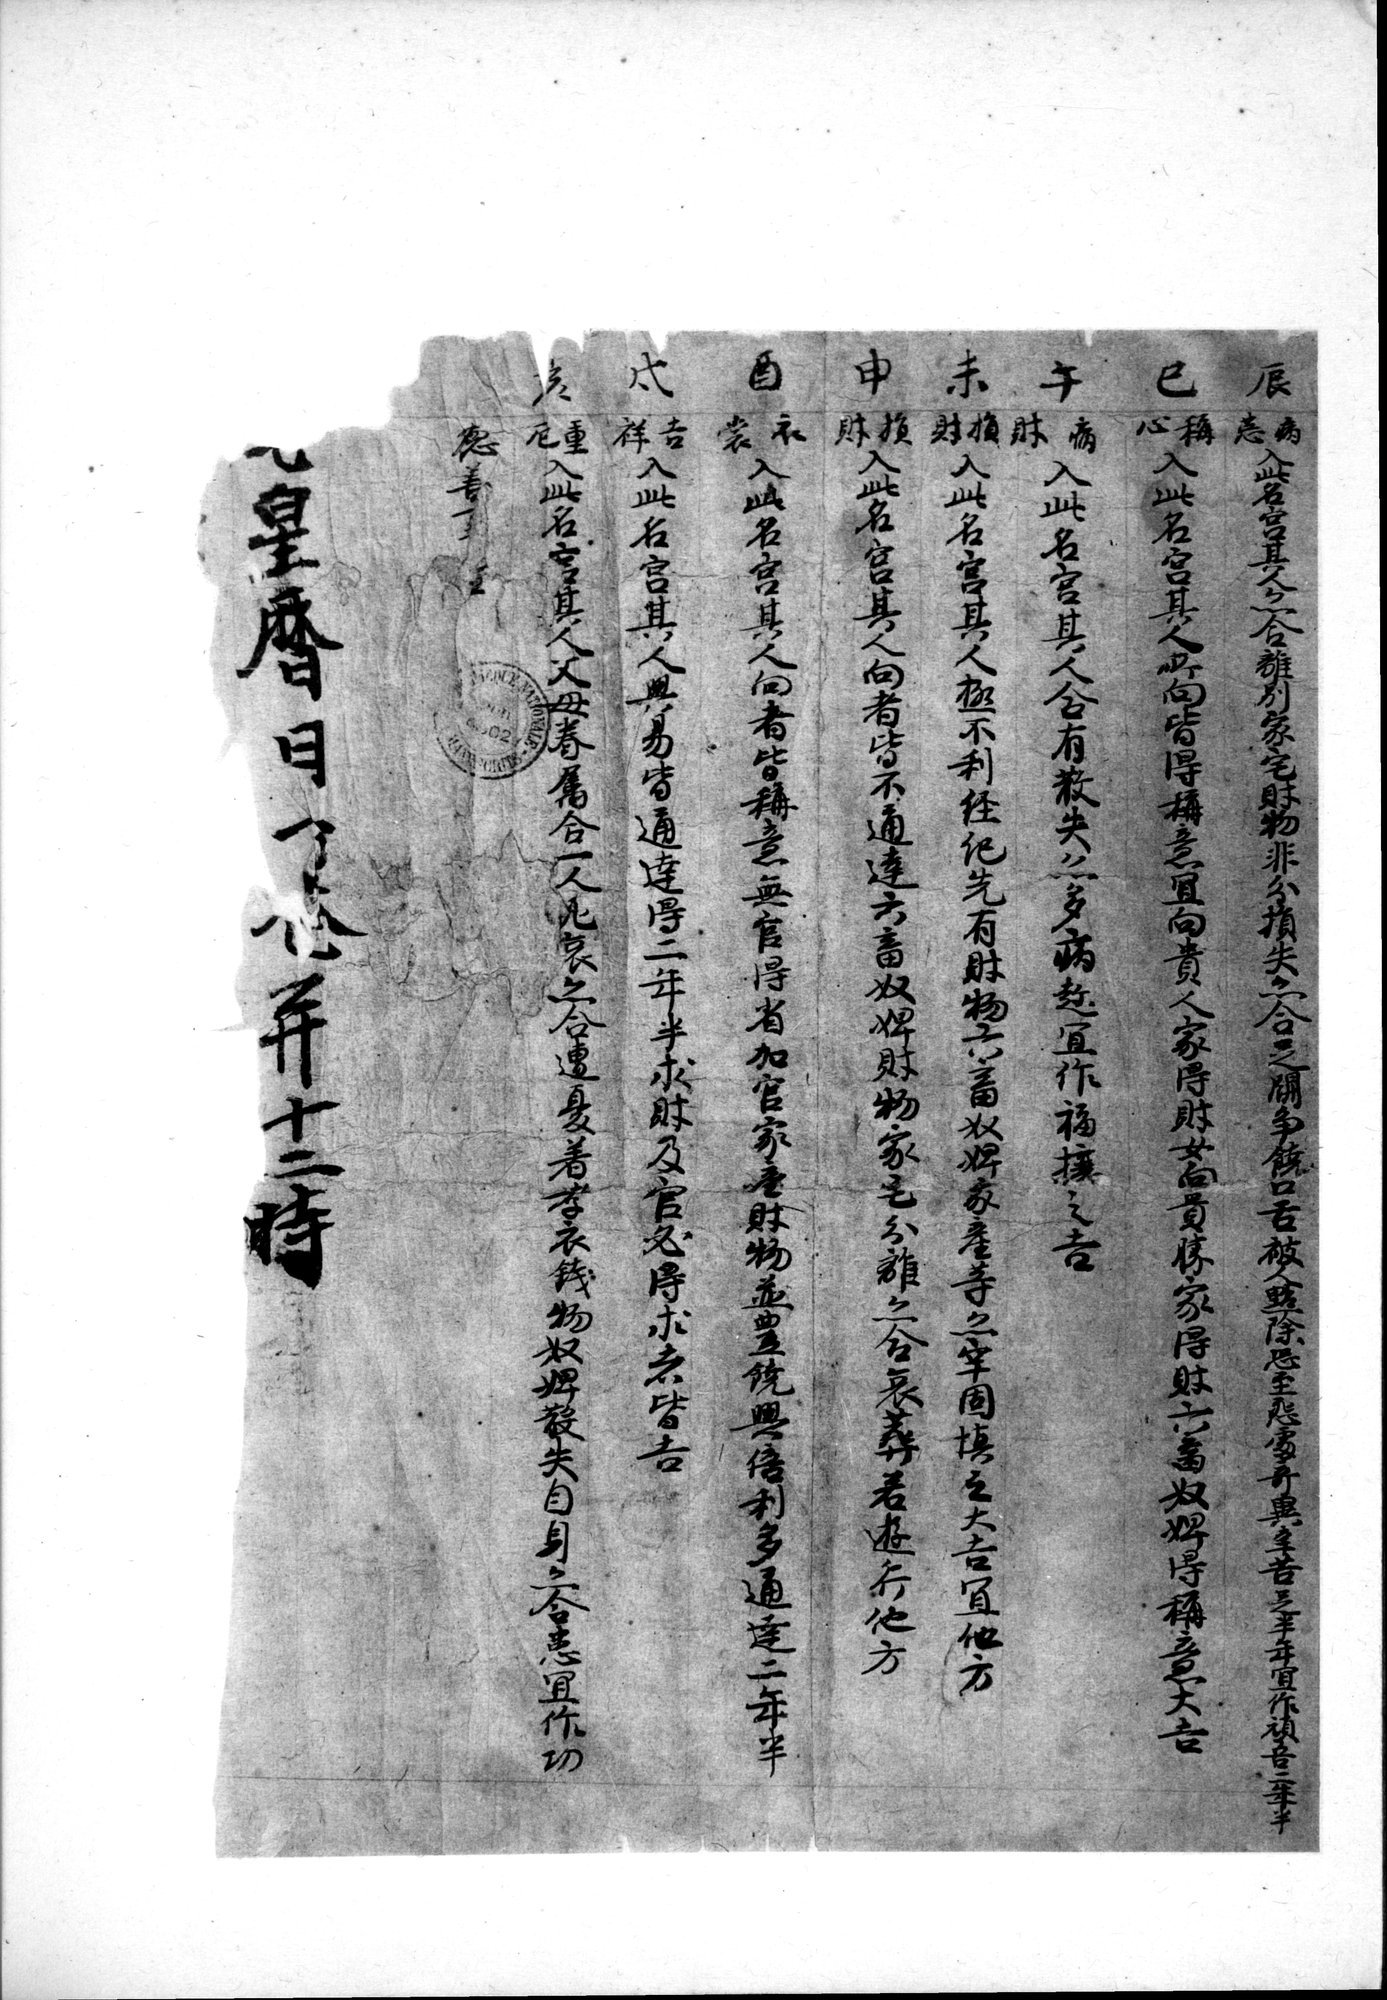 辰 病患 入此名宮其人亦合離別家宅財物非分損失亦合足鬪爭饒口舌被人點除恐至怨處奇異辛苦三年半宜作福吉二年半
巳 稱心 入此名宮其人所向皆得稱意宜向貴人家得財女向貴勝家得財六畜奴婢得稱意大吉
午 病財 入此名宮其人合有散失亦多病趂宜作福攘之吉
未 損財 入此名宮其人極不利經紀先有財物六畜奴婢家産等亦牢固慎之大吉宜他方
申 損財 入此名宮其人向者皆不通達六畜奴婢財物家宅分離亦合哀葬若遊行他方
酉 衣裳 入此名宮其人向者皆稱意無官得省加官家産財物並豊饒興倍利多通達二年半
戌 吉祥 入此名宮其人興易皆通達得二年半求財及官必得求者皆吉
亥 重厄 入此名宮其人父母眷屬合一人死哀亦合遭憂着孝衣錢物奴婢散失自身亦合患宜作功
德善
皇曆日卷并十二時